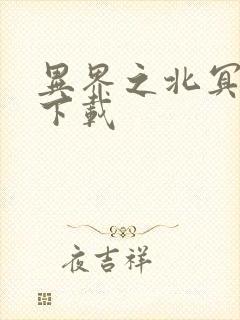 異界之北冥
下載
夜吉祥